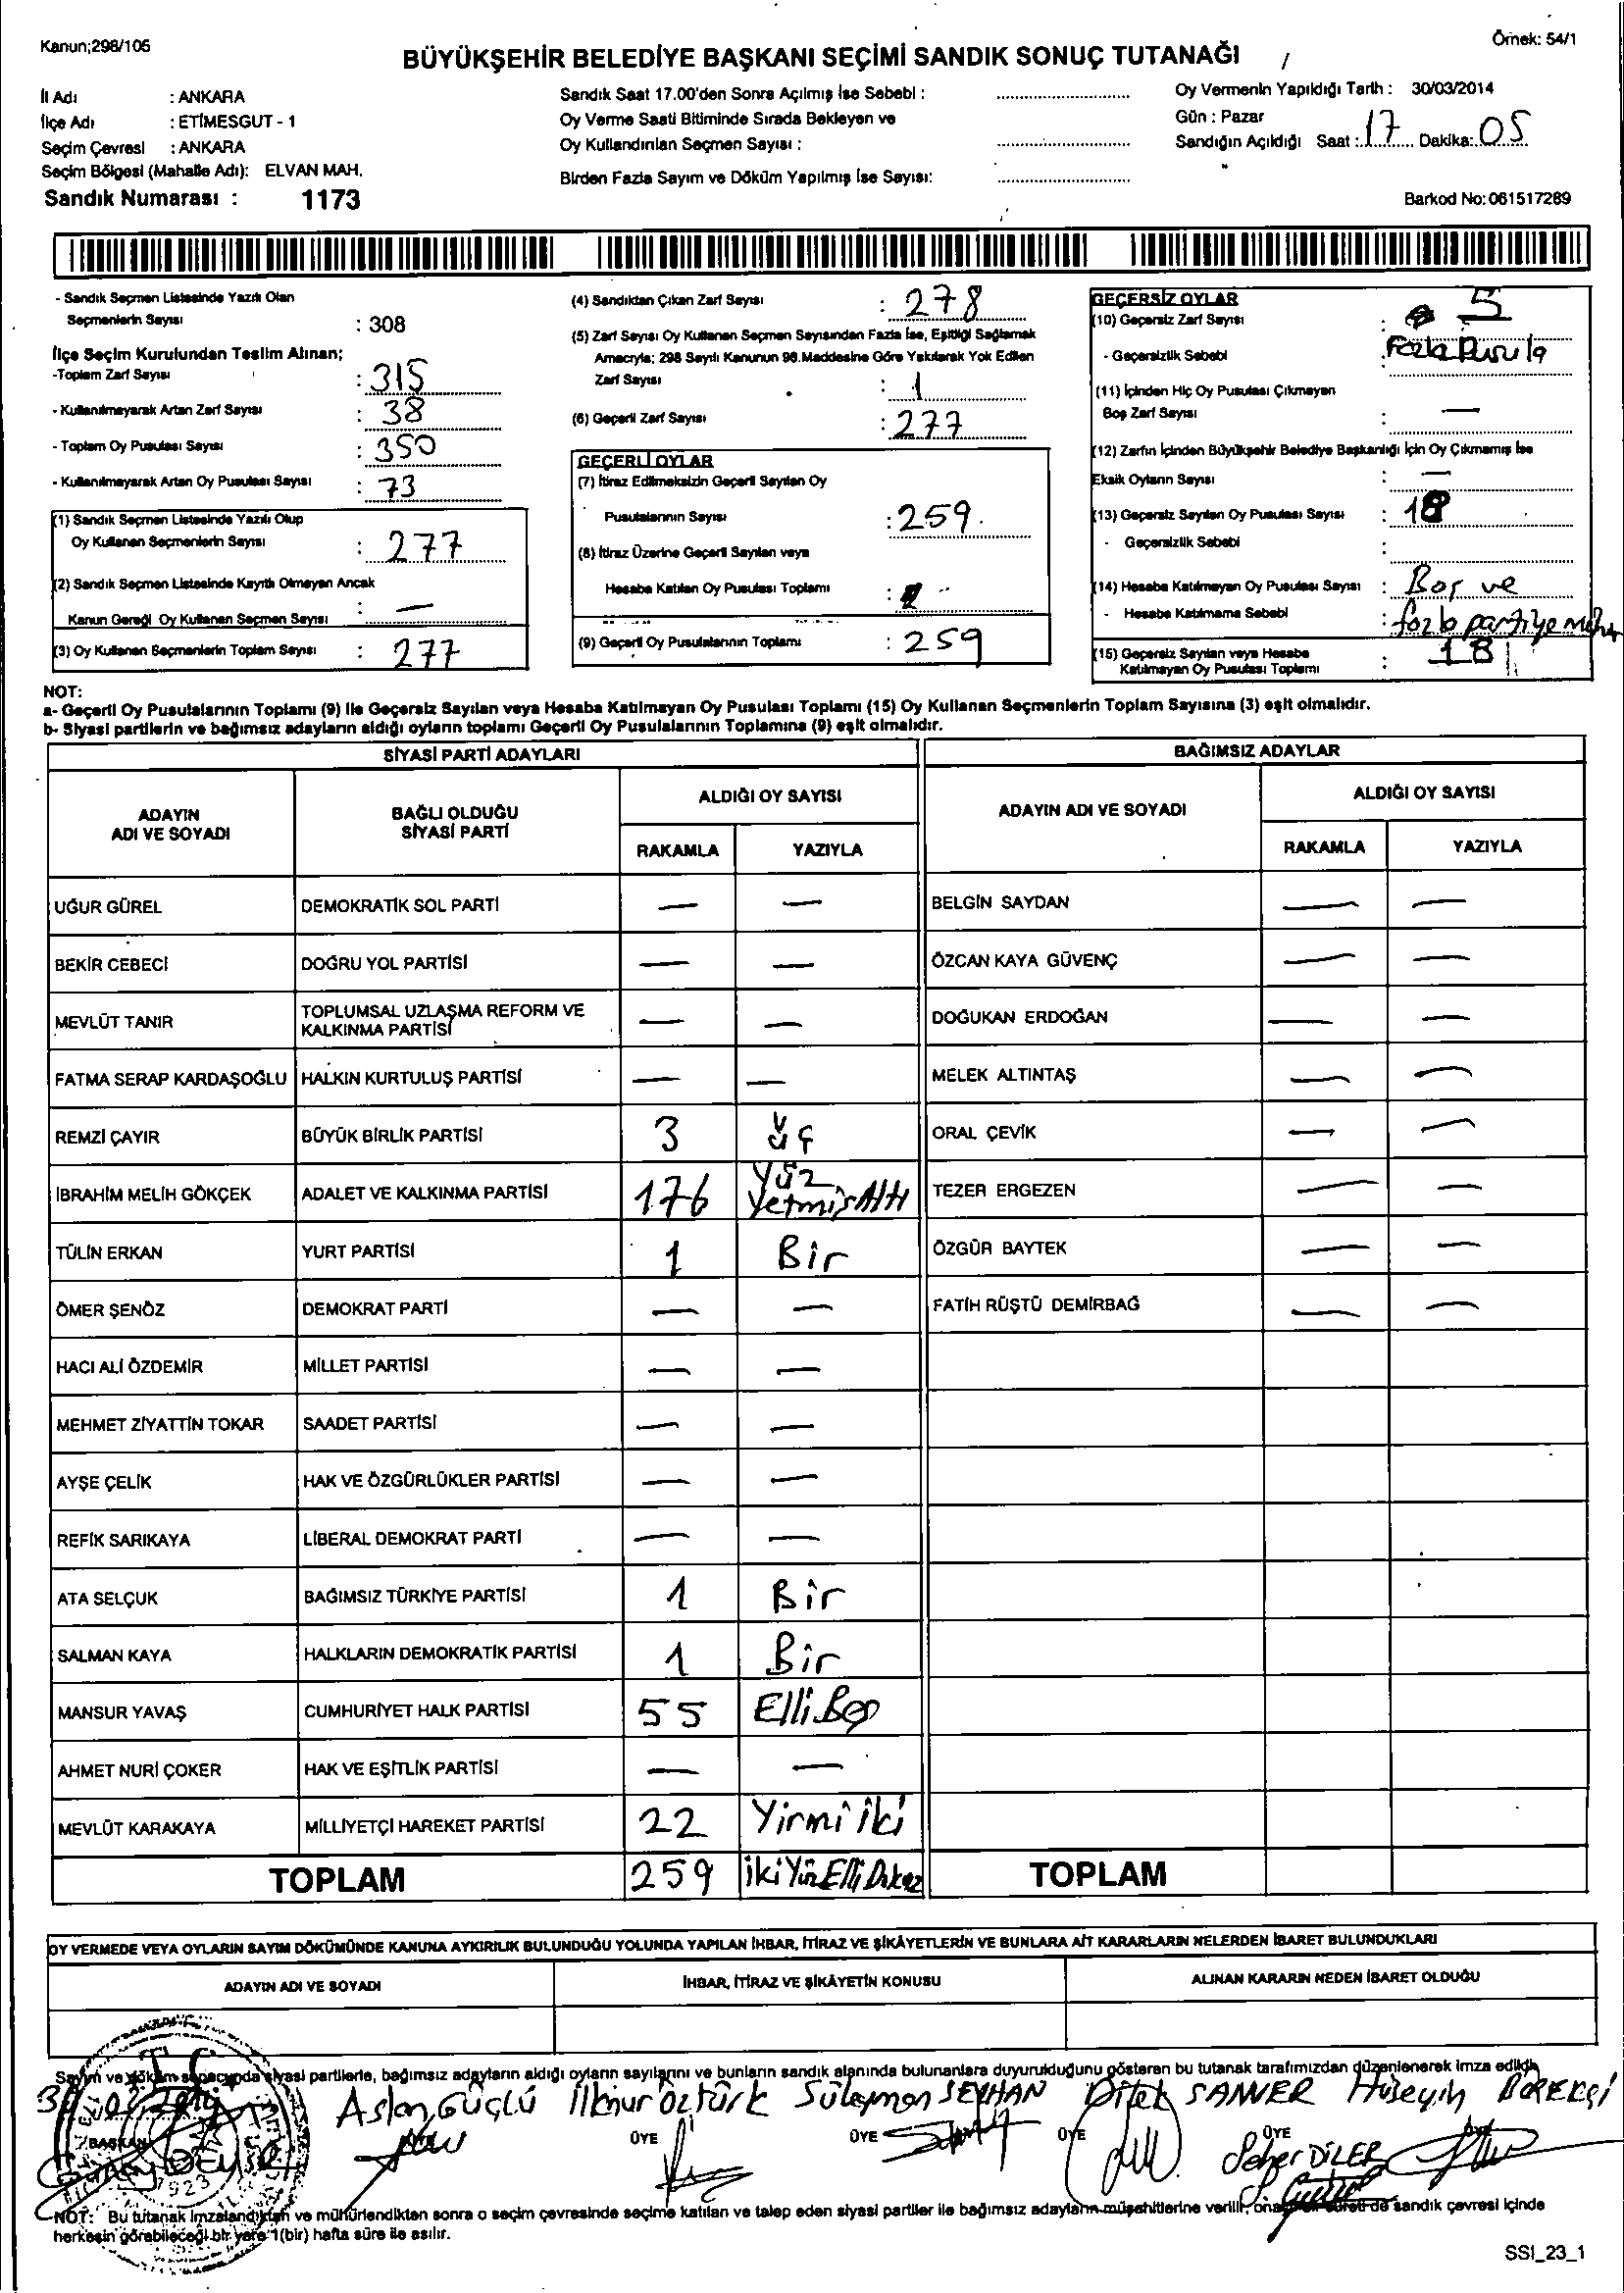 Kanun;298/105
Örnek: 54/1
BÜYÜKŞEHİR BELEDİYE BAŞKANI SEÇİMİ SANDIK SONUÇ TUTANAĞI
İl Adı : ANKARA
İlçe Adı : ETİMESGUT - 1
Seçim Çevresi : ANKARA
Seçim Bölgesi (Mahalle Adı): ELVAN MAH.
Sandık Numarası : 1173
Sandık Saat 17.00'den Sonra Açılmış İse Sebebi :
Oy Verme Saati Bitiminde Sırada Bekleyen ve
Oy Kullandırılan Seçmen Sayısı :
Birden Fazla Sayım ve Döküm Yapılmış İse Sayısı:
Oy Vermenin Yapıldığı Tarih : 30/03/2014
Gün : Pazar
Sandığın Açıldığı Saat : 17 Dakika: 05
Barkod No: 061517289
- Sandık Seçmen Listesinde Yazılı Olan
Seçmenlerin Sayısı : 308
İlçe Seçim Kurulundan Teslim Alınan;
-Toplam Zarf Sayısı : 315
- Kullanılmayarak Artan Zarf Sayısı : 38
- Toplam Oy Pusulası Sayısı : 350
- Kullanılmayarak Artan Oy Pusulası Sayısı : 73
(1) Sandık Seçmen Listesinde Yazılı Olup
Oy Kullanan Seçmenlerin Sayısı : 277
(2) Sandık Seçmen Listesinde Kayıtlı Olmayan Ancak
Kanun Gereği Oy Kullanan Seçmen Sayısı : —
(3) Oy Kullanan Seçmenlerin Toplam Sayısı : 277
(4) Sandıktan Çıkan Zarf Sayısı : 278
(5) Zarf Sayısı Oy Kullanan Seçmen Sayısından Fazla İse, Eşitliği Sağlamak
Amacıyla; 298 Sayılı Kanunun 98.Maddesine Göre Yakılarak Yok Edilen
Zarf Sayısı : 1
(6) Geçerli Zarf Sayısı : 277
GEÇERLİ OYLAR
(7) İtiraz Edilmeksizin Geçerli Sayılan Oy
Pusulalarının Sayısı : 259
(8) İtiraz Üzerine Geçerli Sayılan veya
Hesaba Katılan Oy Pusulası Toplamı :
(9) Geçerli Oy Pusulalarının Toplamı : 259
GEÇERSİZ OYLAR
(10) Geçersiz Zarf Sayısı : 5
- Geçersizlik Sebebi : Fazla Pusula
(11) İçinden Hiç Oy Pusulası Çıkmayan
Boş Zarf Sayısı : —
(12) Zarfın İçinden Büyükşehir Belediye Başkanlığı İçin Oy Çıkmamış İse
Eksik Oyların Sayısı : —
(13) Geçersiz Sayılan Oy Pusulası Sayısı : 18
- Geçersizlik Sebebi :
(14) Hesaba Katılmayan Oy Pusulası Sayısı : Boş ve
- Hesaba Katılmama Sebebi : fazla partiye mühür
(15) Geçersiz Sayılan veya Hesaba
Katılmayan Oy Pusulası Toplamı : 18
NOT:
a- Geçerli Oy Pusulalarının Toplamı (9) ile Geçersiz Sayılan veya Hesaba Katılmayan Oy Pusulası Toplamı (15) Oy Kullanan Seçmenlerin Toplam Sayısına (3) eşit olmalıdır.
b- Siyasi partilerin ve bağımsız adayların aldığı oyların toplamı Geçerli Oy Pusulalarının Toplamına (9) eşit olmalıdır.
SİYASİ PARTİ ADAYLARI
ADAYIN ADI VE SOYADI BAĞLI OLDUĞU SİYASİ PARTİ ALDIĞI OY SAYISI
RAKAMLA YAZIYLA
UĞUR GÜREL DEMOKRATİK SOL PARTİ — —
BEKİR CEBECİ DOĞRU YOL PARTİSİ — —
MEVLÜT TANIR TOPLUMSAL UZLAŞMA REFORM VE KALKINMA PARTİSİ — —
FATMA SERAP KARDAŞOĞLU HALKIN KURTULUŞ PARTİSİ — —
REMZİ ÇAYIR BÜYÜK BİRLİK PARTİSİ 3 üç
İBRAHİM MELİH GÖKÇEK ADALET VE KALKINMA PARTİSİ 176 Yüz YetmişAltı
TÜLİN ERKAN YURT PARTİSİ 1 Bir
ÖMER ŞENÖZ DEMOKRAT PARTİ — —
HACI ALİ ÖZDEMİR MİLLET PARTİSİ — —
MEHMET ZİYATTİN TOKAR SAADET PARTİSİ — —
AYŞE ÇELİK HAK VE ÖZGÜRLÜKLER PARTİSİ — —
REFİK SARIKAYA LİBERAL DEMOKRAT PARTİ — —
ATA SELÇUK BAĞIMSIZ TÜRKİYE PARTİSİ 1 Bir
SALMAN KAYA HALKLARIN DEMOKRATİK PARTİSİ 1 Bir
MANSUR YAVAŞ CUMHURİYET HALK PARTİSİ 55 Elli Beş
AHMET NURİ ÇOKER HAK VE EŞİTLİK PARTİSİ — —
MEVLÜT KARAKAYA MİLLİYETÇİ HAREKET PARTİSİ 22 Yirmi İki
TOPLAM 259 İki Yüz Elli Dokuz
BAĞIMSIZ ADAYLAR
ADAYIN ADI VE SOYADI ALDIĞI OY SAYISI
RAKAMLA YAZIYLA
BELGİN SAYDAN — —
ÖZCAN KAYA GÜVENÇ — —
DOĞUKAN ERDOĞAN — —
MELEK ALTINTAŞ — —
ORAL ÇEVİK — —
TEZER ERGEZEN — —
ÖZGÜR BAYTEK — —
FATİH RÜŞTÜ DEMİRBAĞ — —
TOPLAM
OY VERMEDE VEYA OYLARIN SAYIM DÖKÜMÜNDE KANUNA AYKIRILIK BULUNDUĞU YOLUNDA YAPILAN İHBAR, İTİRAZ VE ŞİKÂYETLERİN VE BUNLARA AİT KARARLARIN NELERDEN İBARET BULUNDUKLARI
ADAYIN ADI VE SOYADI İHBAR, İTİRAZ VE ŞİKÂYETİN KONUSU ALINAN KARARIN NEDEN İBARET OLDUĞU
Sayım ve döküm sonucunda siyasi partilerle, bağımsız adayların aldığı oyların sayılarını ve bunların sandık alanında bulunanlara duyurulduğunu gösteren bu tutanak tarafımızdan düzenlenerek imza edildi.
Aslan Güçlü İlknur Öztürk Süleyman SEYHAN Dilek SANVER Hüseyin BÖREKÇİ
BAŞKAN ÜYE ÜYE ÜYE ÜYE
Seher DİLER
NOT: Bu tutanak imzalandıktan ve mühürlendikten sonra o seçim çevresinde seçime katılan ve talep eden siyasi partiler ile bağımsız adayların müşahitlerine verilir, sandık çevresi içinde
herkesin görebileceği bir yere 1(bir) hafta süre ile asılır.
SSI_23_1